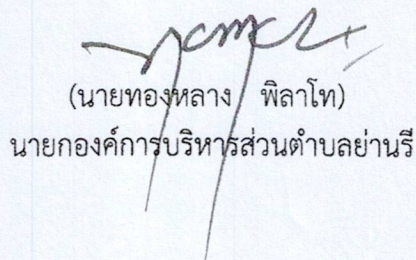 (นายทองหลาง พิลาโท)
นายกองค์การบริหารส่วนตำบลย่านรี